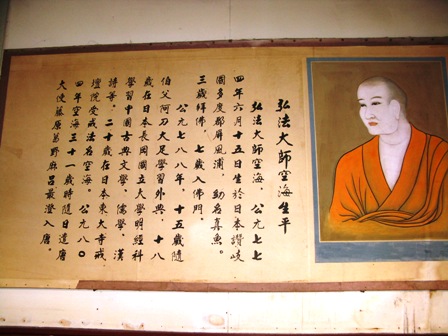 弘法大師空海生平
弘法大師空海,公元七七
四年六月十五日生於日本讚岐
國多度郡屏風浦,幼名真魚。
三歲拜佛,七歲入佛門。
公元七八八年,十五歲隨
伯父阿刀大足學習外典,十八
歲在日本長岡國立大學明經科
學習中國古典文學、儒學、漢
詩等,二十歲在日本東大寺戒
壇院受戒法名空海,公元八〇
四年空海三十一歲時隨日遣唐
大使藤原葛野麻呂最澄入唐。